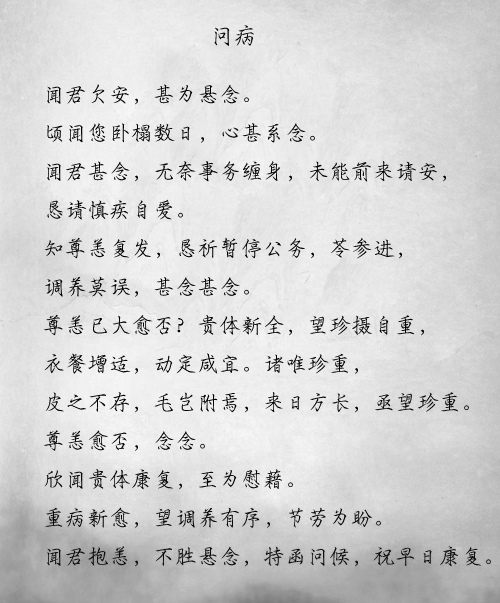 问病
闻君欠安，甚为悬念。
顷闻您卧榻数日，心甚系念。
闻君甚念，无奈事务缠身，未能前来请安，
恳请慎疾自爱。
知尊恙复发，恳祈暂停公务，苓参进，
调养莫误，甚念甚念。
尊恙已大愈否？贵体新全，望珍摄自重，
衣餐增适，动定咸宜。诸唯珍重，
皮之不存，毛岂附焉，来日方长，亟望珍重。
尊恙愈否，念念。
欣闻贵体康复，至为慰藉。
重病新愈，望调养有序，节劳为盼。
闻君抱恙，不胜悬念，特函问候，祝早日康复。